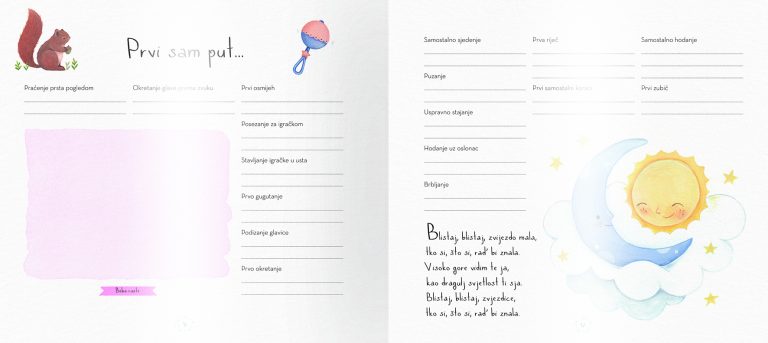 Prvi sam put...
Praćenje prsta pogledom
Okretanje glave prema zvuku
Prvi osmijeh
Posezanje za igračkom
Stavljanje igračke u usta
Prvo gugutanje
Podizanje glavice
Prvo okretanje
Samostalno sjedenje
Prva riječ
Samostalno hodanje
Puzanje
Prvi samostalni koraci
Prvi zubić
Uspravno stajanje
Hodanje uz oslonac
Brbljanje
Blistaj, blistaj, zvijezdo mala,
tko si, što si, rad' bi znala.
Visoko gore vidim te ja,
kao dragulj svjetlost ti sja.
Blistaj, blistaj, zvjezdice,
tko si, što si, rad' bi znala.